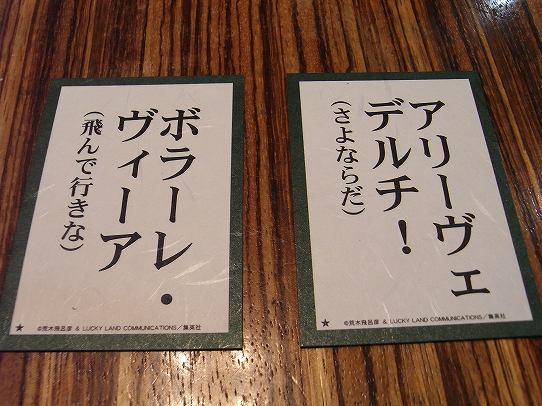 アリーヴェ
デルチ！
（さよならだ）
★ ©荒木飛呂彦 & LUCKY LAND COMMUNICATIONS／集英社
ボラーレ・
ヴィーア
（飛んで行きな）
★ ©荒木飛呂彦 & LUCKY LAND COMMUNICATIONS／集英社